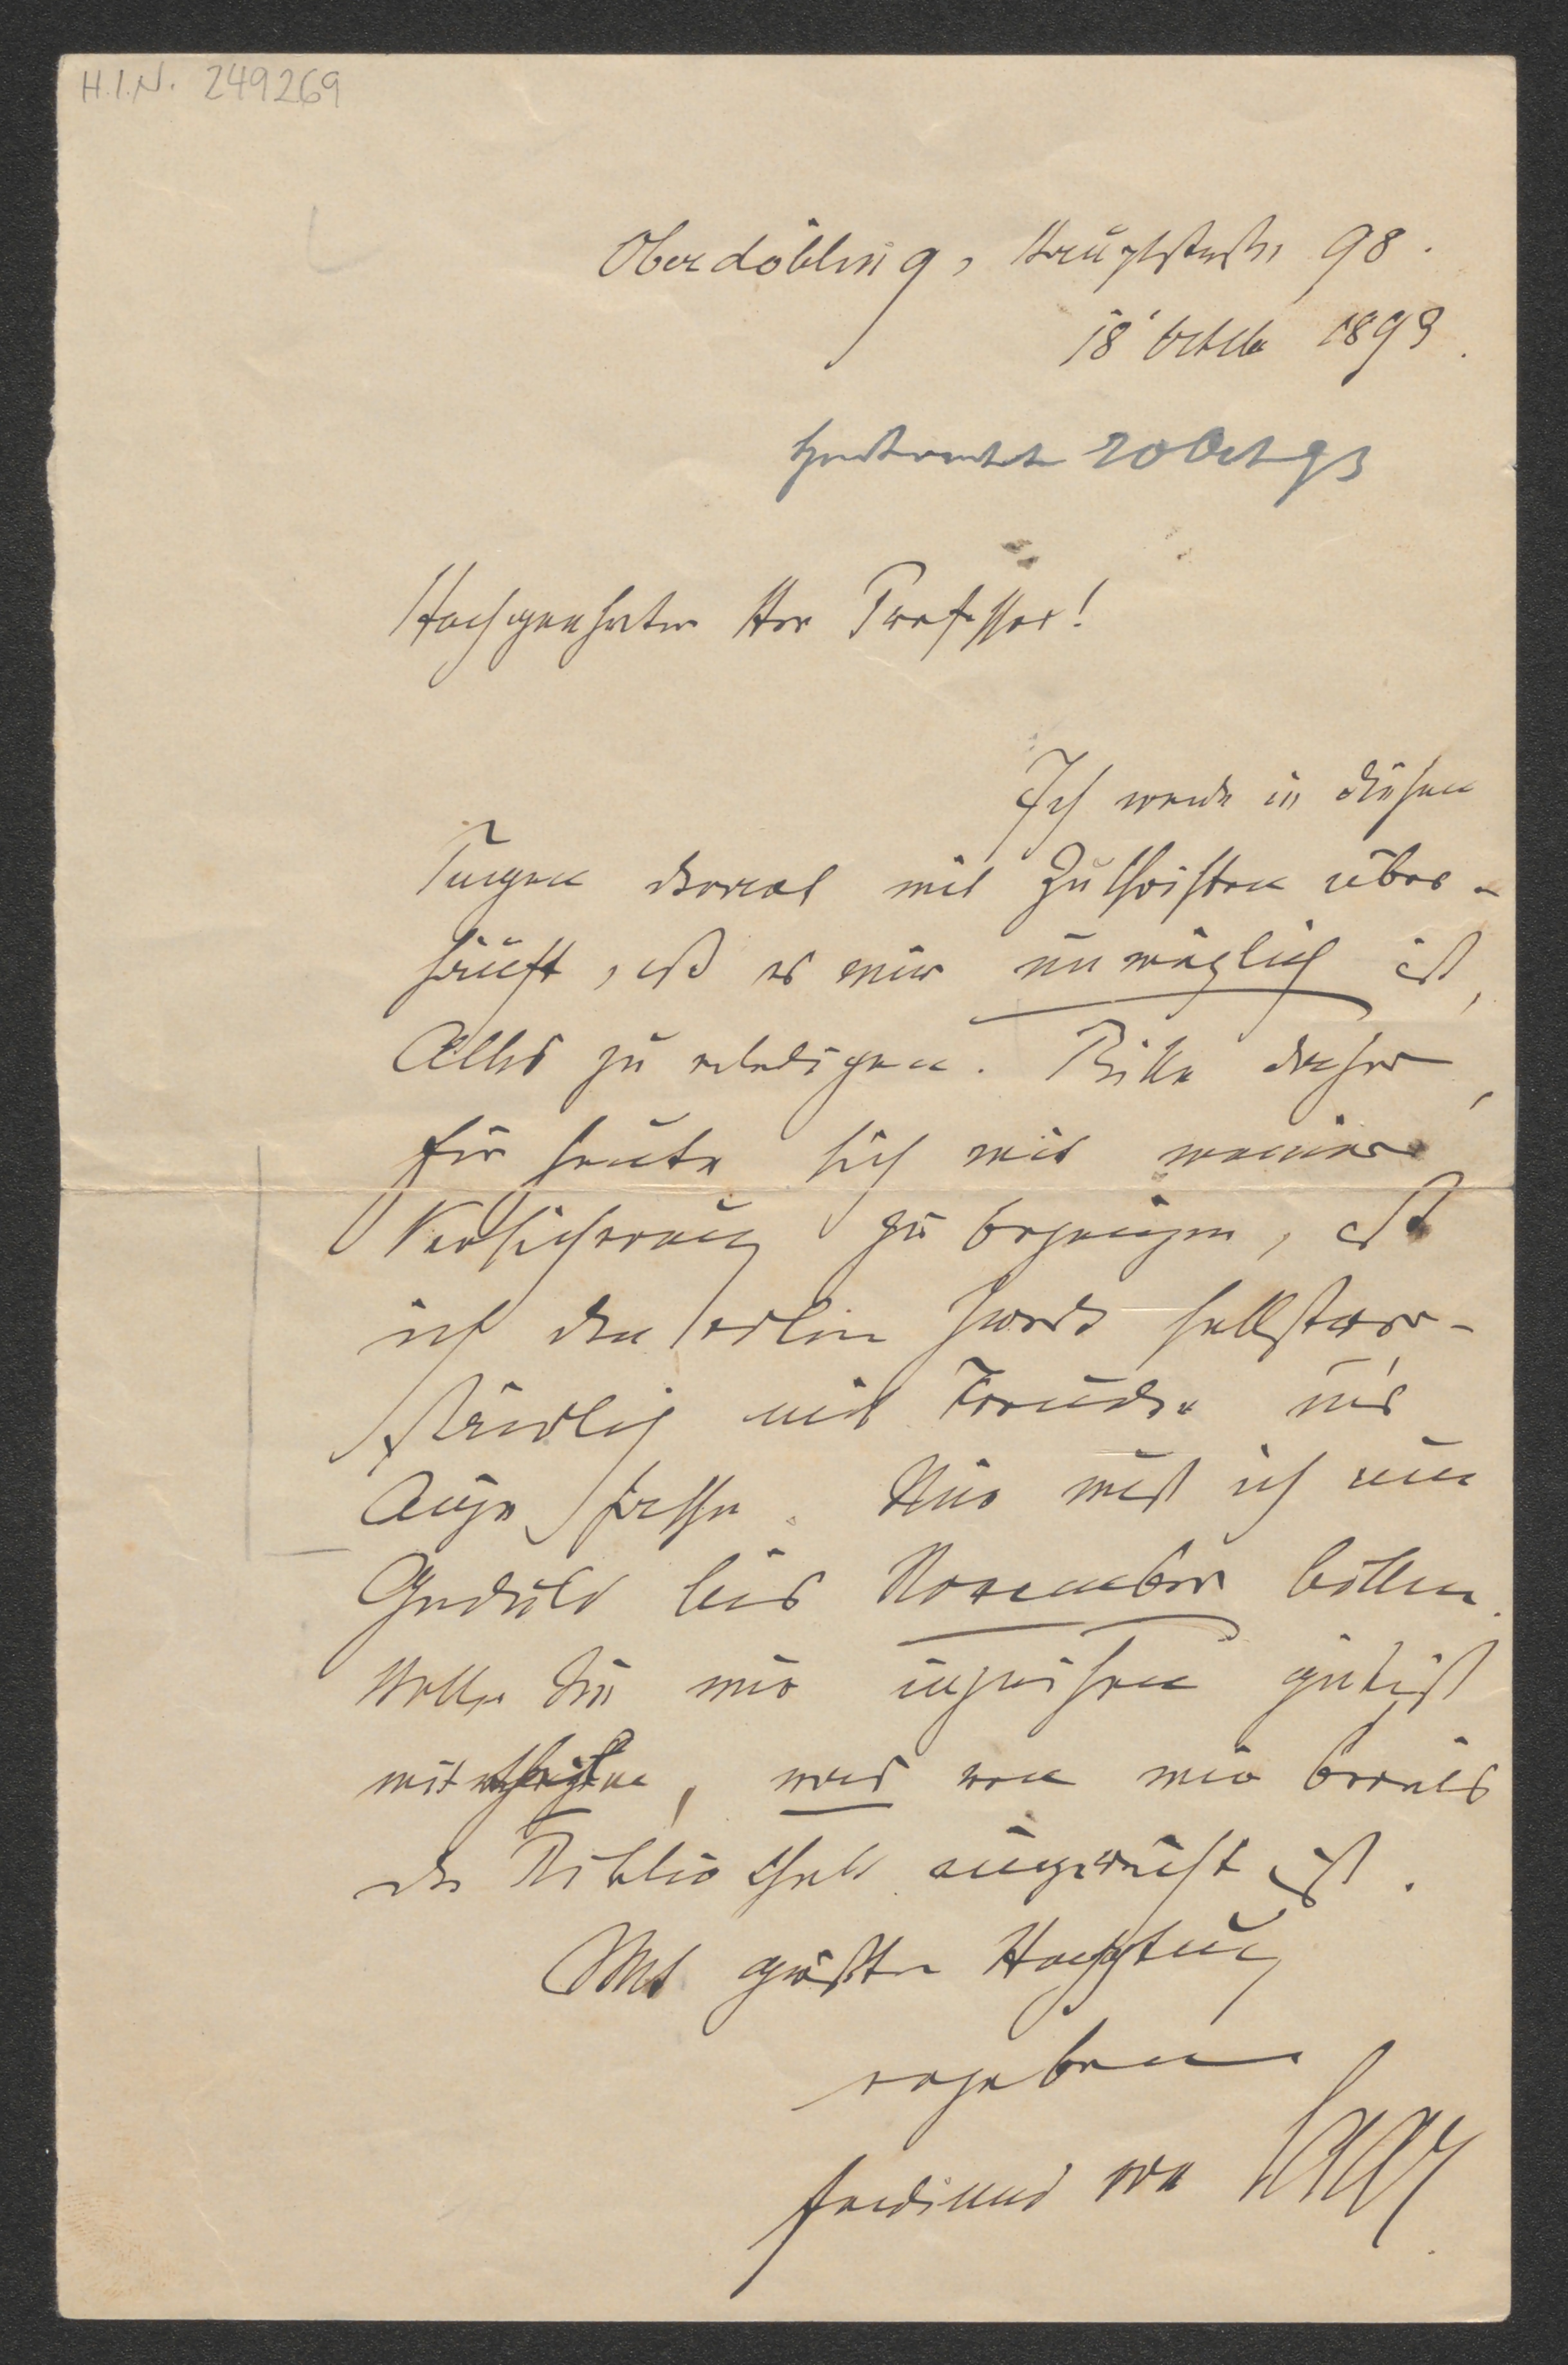 H.I.N. 249269
Oberdöbling, Hauptstraße 98.
18' October 1893.
20 Oct 93
Hochgeehrter Herr Professor!
Ich werde in diesen
Tagen derart mit Zuschriften über-
häuft, daß es mir unmöglich ist,
Alles zu erledigen. Bitte daher,
für heute sich mit meiner
Versicherung zu begnügen, daß
ich den edlen Zweck selbstver-
ständlich mit Freuden in's
Auge fasse. Nur muß ich um
Geduld bis November bitten.
Wollen Sie mir inzwischen gütigst
mittheilen, was von mir bereits
der Bibliothek eingereiht ist.
Mit größter Hochachtung
ergeben
Ferdinand von Saar